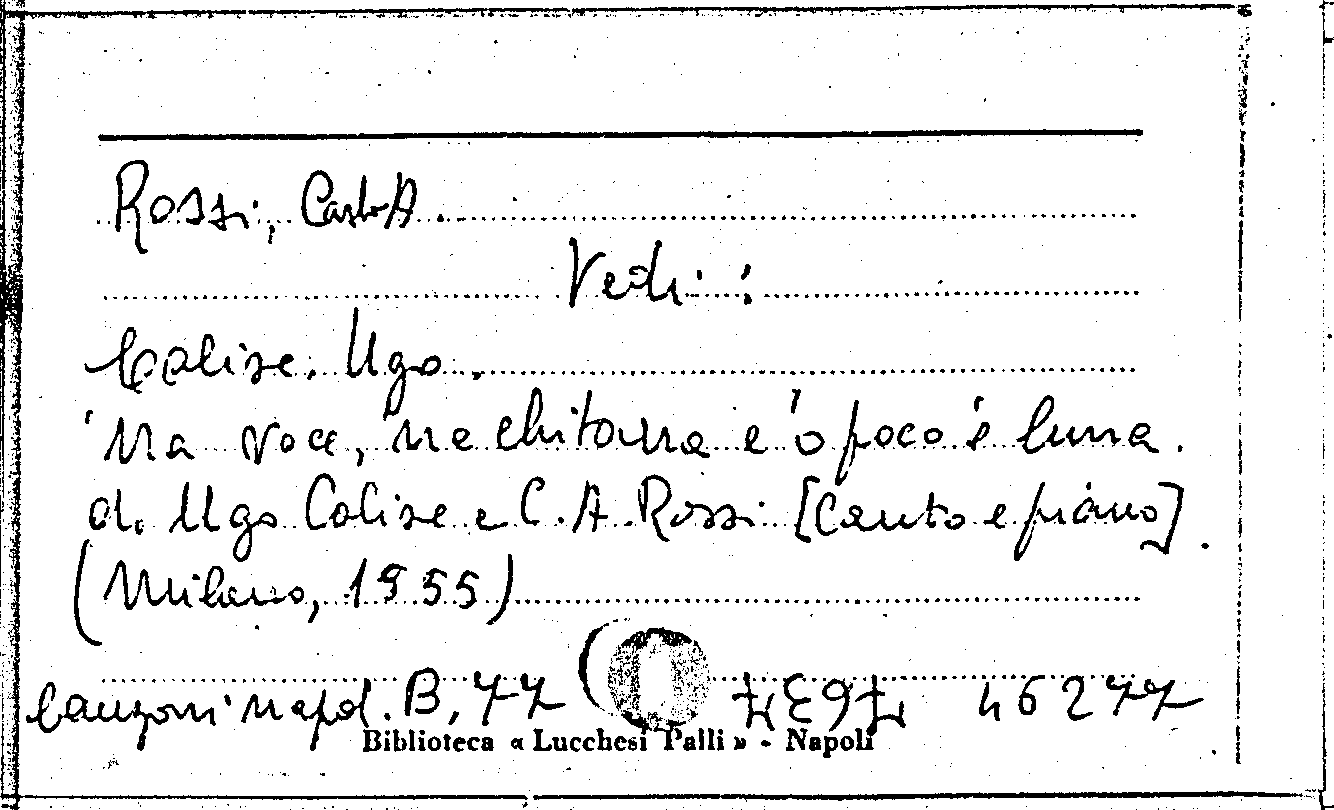 Rossi, Carlo A.
Vedi:
Calise, Ugo.
'Na voce, 'na chitarra e 'o poco 'e luna.
di Ugo Calise e C. A. Rossi [Canto e piano].
(Milano, 1955)
Canzoni napol. B, 77 46277
Biblioteca « Lucchesi Palli » - Napoli